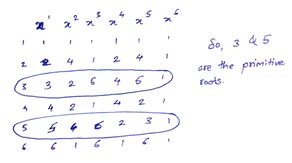 x¹ x² x³ x⁴ x⁵ x⁶
1 1 1 1 1 1 1
2 2 4 1 2 4 1
3 3 2 6 4 5 1
4 4 2 1 4 2 1
5 5 4 6 2 3 1
6 6 1 6 1 6 1
So, 3 & 5
are the primitive
roots.